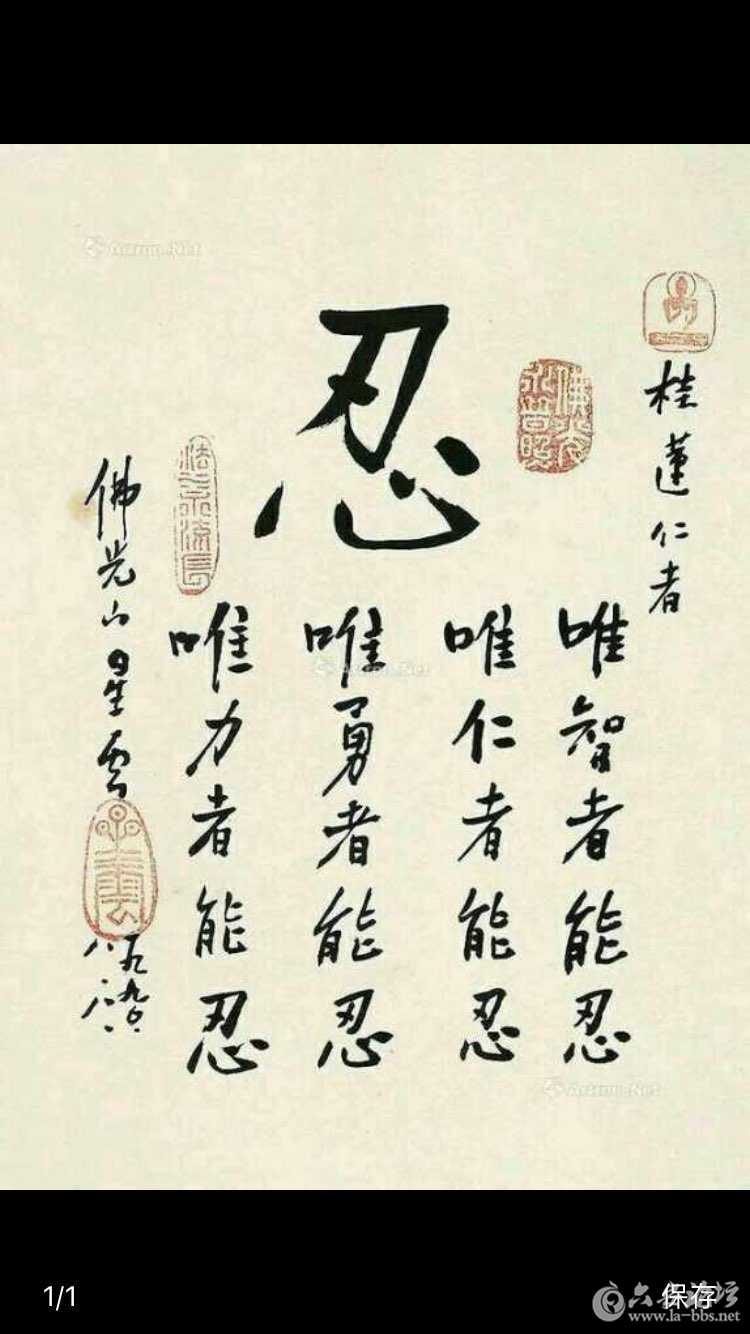 桂蓮仁者
忍
唯智者能忍
唯仁者能忍
唯勇者能忍
唯力者能忍
佛光山星雲
佛光永普照
法水流長
Artron.Net
Artron.Net
Artron.Net
1/1
保存
www.la-bbs.net